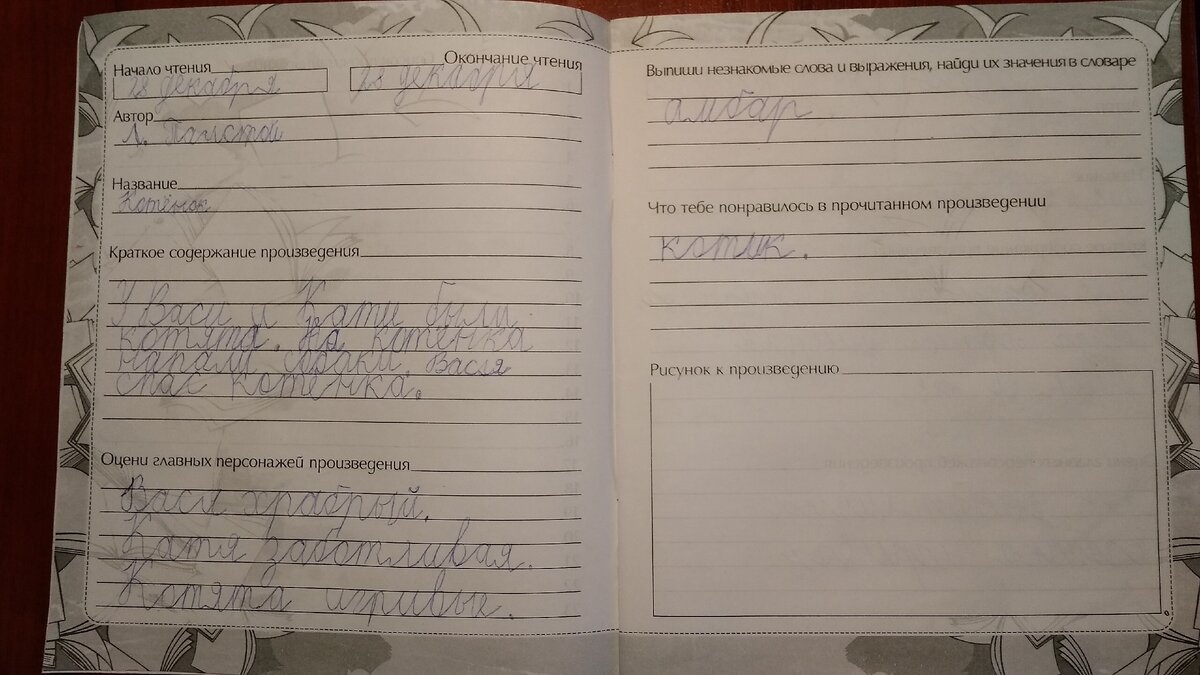 Начало чтения
Окончание чтения
28 декабря
28 декабря
Автор
Л. Толстой
Название
Котёнок
Краткое содержание произведения
У Васи и Кати были
котята. На котёнка
напали собаки. Вася
спас котёнка.
Оцени главных персонажей произведения
Вася храбрый.
Катя заботливая.
Котята игривые.
Выпиши незнакомые слова и выражения, найди их значения в словаре
амбар
Что тебе понравилось в прочитанном произведении
котик.
Рисунок к произведению